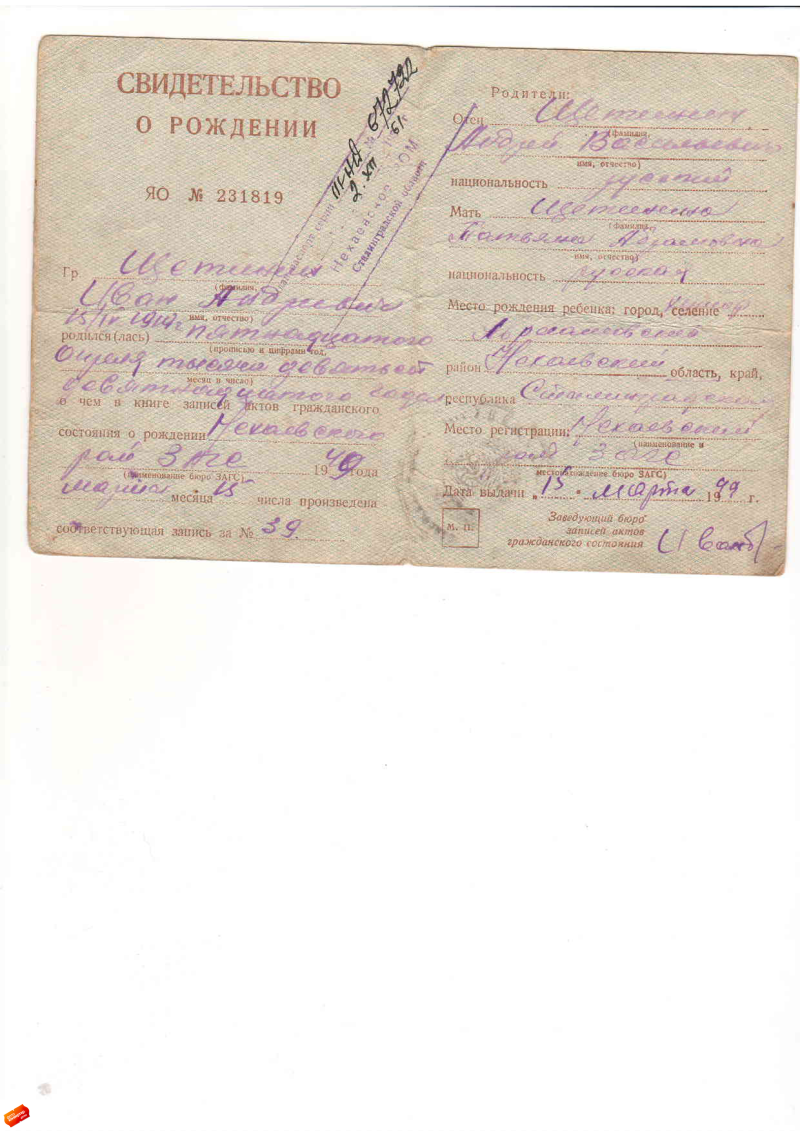 СВИДЕТЕЛЬСТВО
О РОЖДЕНИИ
ЯО № 231819
III-НД № 672722
2. XII 61г.
Нехаевское РОМ
Сталинградской области
Гр. Щетинин
(фамилия,
Иван Андреевич
имя, отчество)
15/IV 1919г. пятнадцатого
родился(лась)
(прописью и цифрами год,
апреля тысяча девятьсот
месяц и число)
девятнадцатого года
о чем в книге записей актов гражданского
состояния о рождении Нехаевского
рай ЗАГС 1949 года
(наименование бюро ЗАГС)
марта месяца 15 числа произведена
соответствующая запись за № 39
Родители:
Отец Щетинин
(фамилия,
Андрей Васильевич
имя, отчество)
национальность русский
Мать Щетинина
(фамилия,
Татьяна Абрамовна
имя, отчество)
национальность русская
Место рождения ребенка: город, селение
район Нехаевский область, край,
республика Сталинградская
Место регистрации: Нехаевский
(наименование и
ЗАГС
местонахождение бюро ЗАГС)
Дата выдачи „15" марта 1949 г.
М. П.
Заведующий бюро
записей актов
гражданского состояния